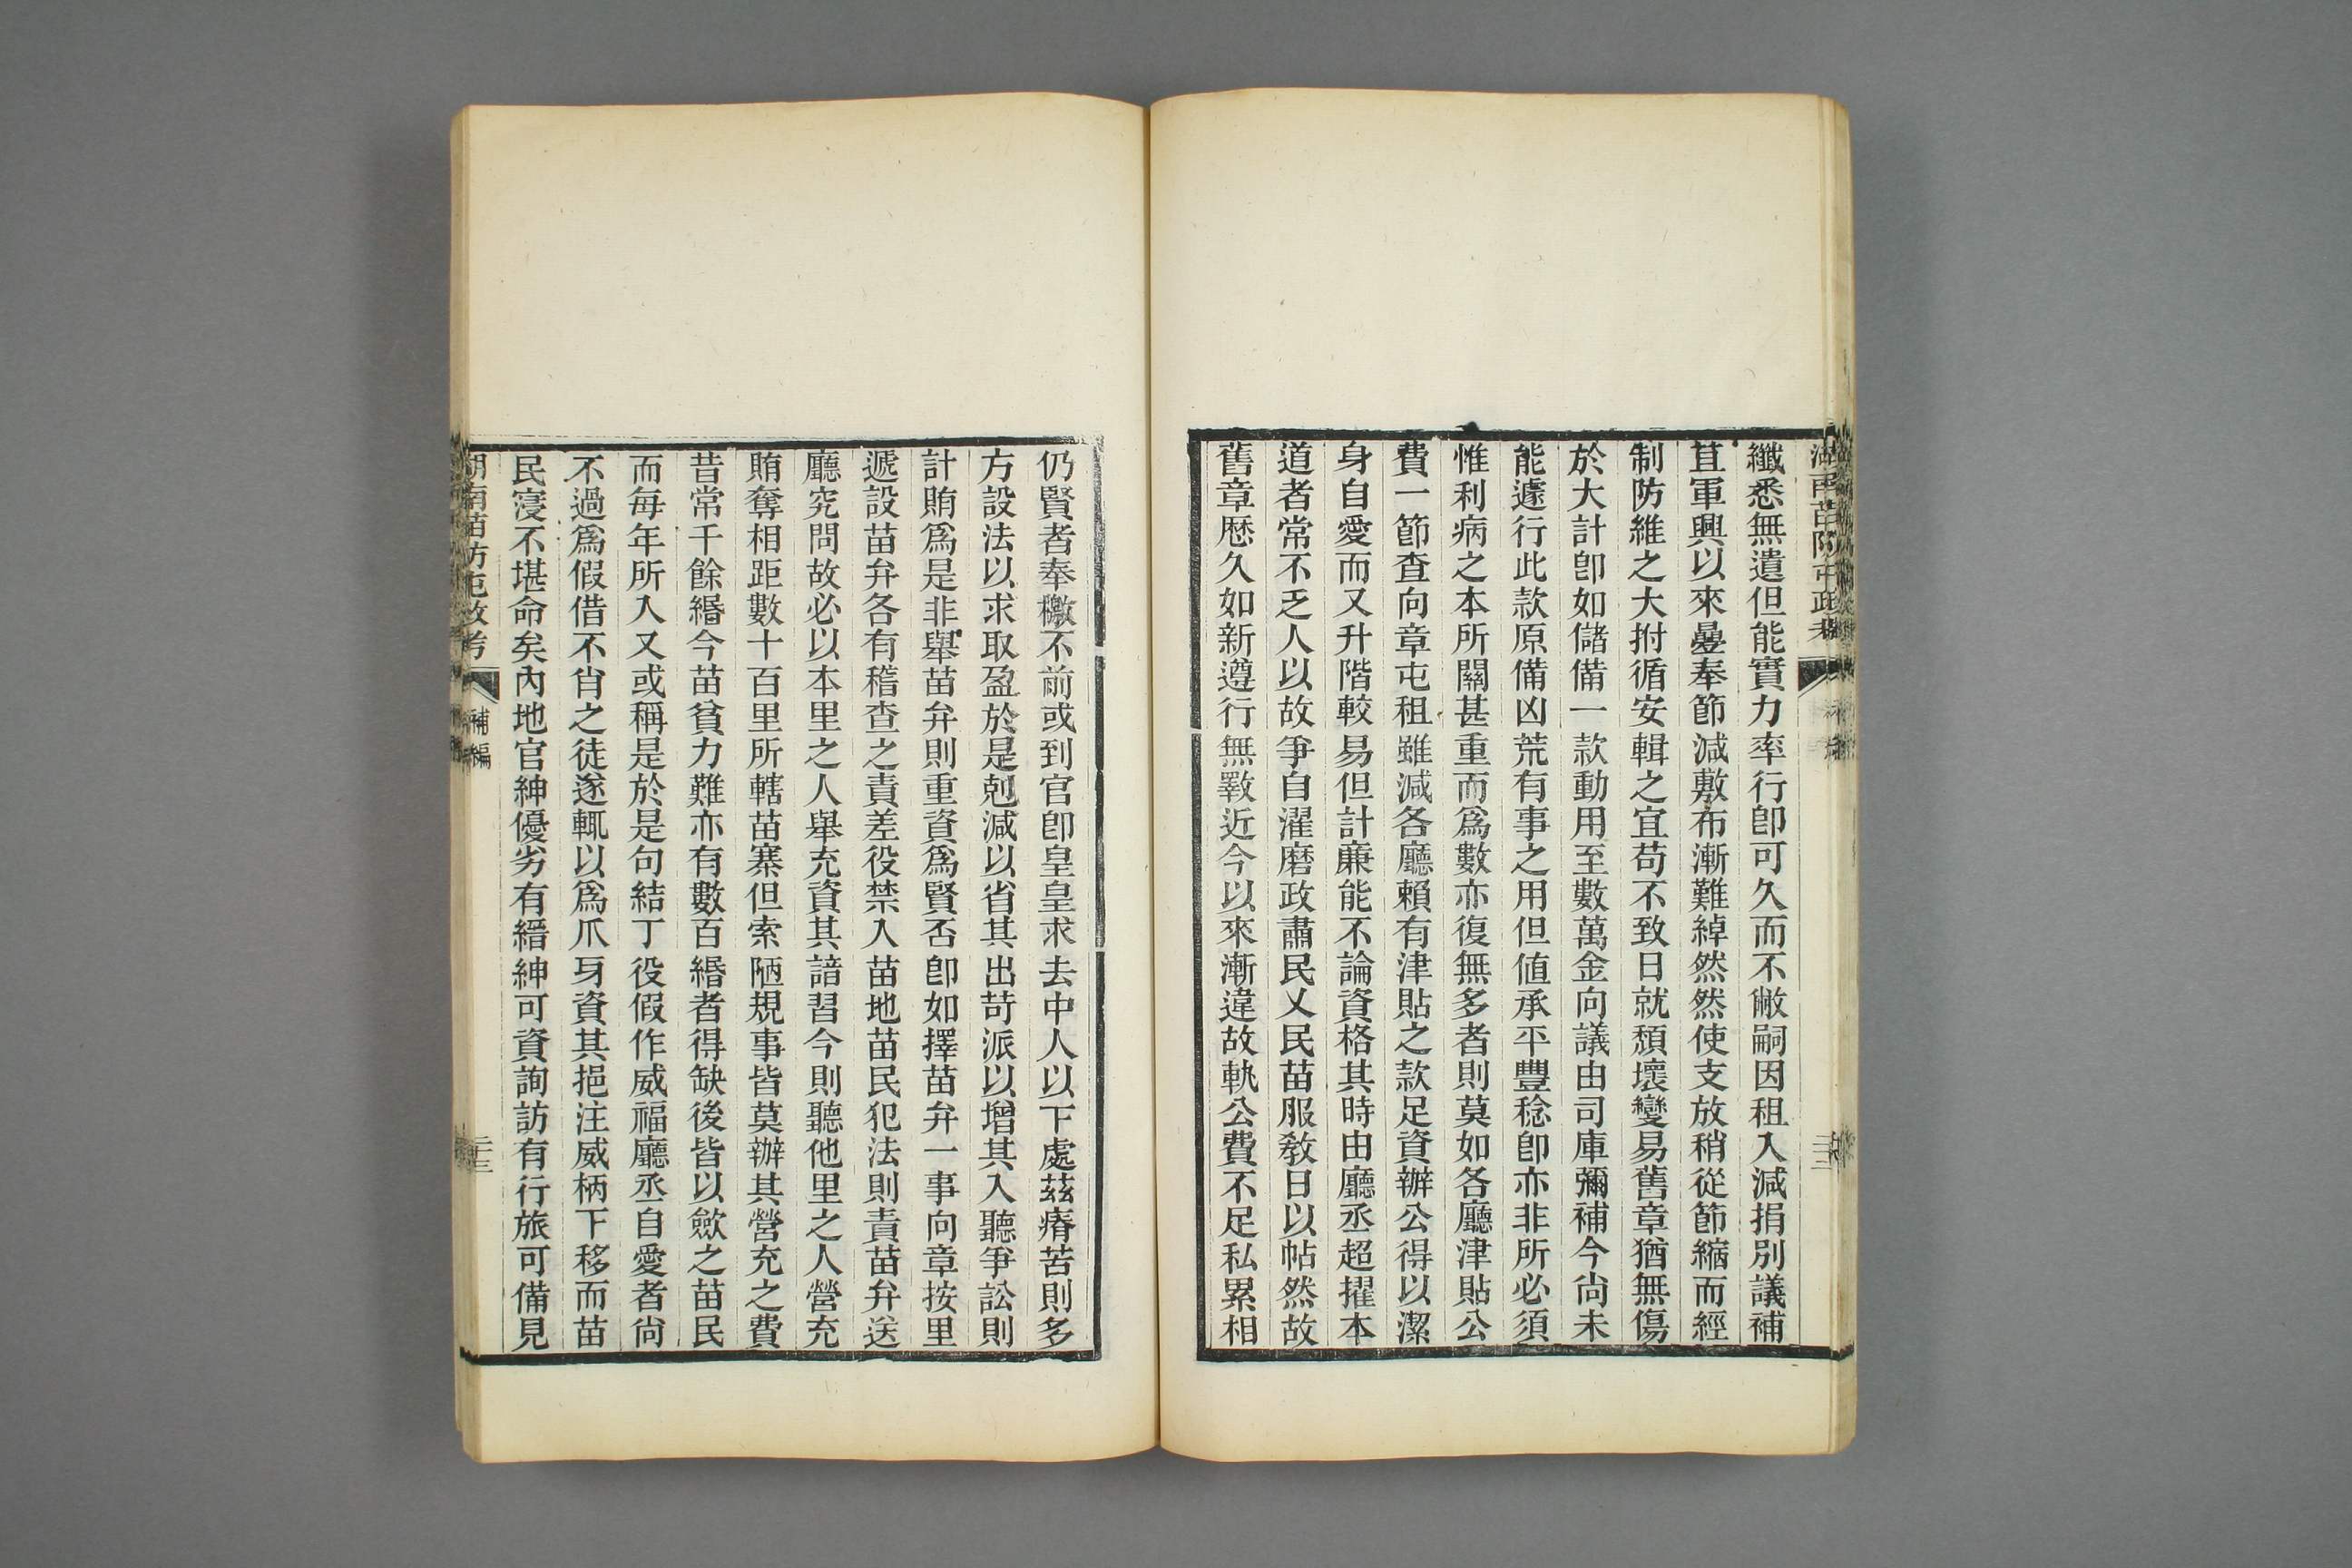 湖南苗防屯政考
纖悉無遺但能實力率行卽可久而不敝嗣因租入減捐別議補
苴軍興以來曡奉節減敷布漸難綽然然使支放稍從節縮而經
制防維之大拊循安輯之宜苟不致日就頹壞變易舊章猶無傷
於大計卽如儲備一款動用至數萬金向議由司庫彌補今尙未
能遽行此款原備凶荒有事之用但値承平豐稔卽亦非所必須
惟利病之本所關甚重而爲數亦復無多者則莫如各廳津貼公
費一節查向章屯租雖減各廳賴有津貼之款足資辦公得以潔
身自愛而又升階較易但計廉能不論資格其時由廳丞超擢本
道者常不乏人以故爭自濯磨政肅民乂民苗服敎日以帖然故
舊章歷久如新遵行無斁近今以來漸違故軌公費不足私累相
仍賢者奉檄不前或到官卽皇皇求去中人以下處茲瘠苦則多
方設法以求取盈於是剋減以省其出苛派以增其入聽爭訟則
計賄爲是非舉苗弁則重資爲賢否卽如擇苗弁一事向章按里
遞設苗弁各有稽查之責差役禁入苗地苗民犯法則責苗弁送
廳究問故必以本里之人舉充資其諳習今則聽他里之人營充
賄奪相距數十百里所轄苗寨但索陋規事皆莫辦其營充之費
昔常千餘緡今苗貧力難亦有數百緡者得缺後皆以斂之苗民
而每年所入又或稱是於是句結丁役假作威福廳丞自愛者尙
不過爲假借不肖之徒遂輒以爲爪牙資其挹注威柄下移而苗
民寖不堪命矣內地官紳優劣有縉紳可資詢訪有行旅可備見
湖南苗防屯政考
補編
二十三